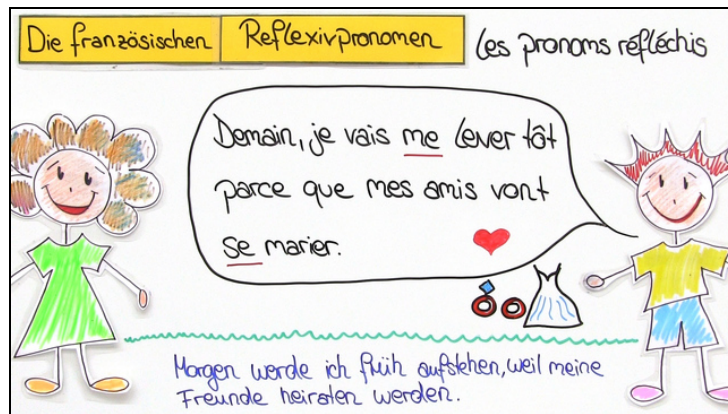 Die französischen Reflexivpronomen les pronoms réfléchis
Demain, je vais me lever tôt
parce que mes amis vont
se marier.
Morgen werde ich früh aufstehen, weil meine
Freunde heiraten werden.